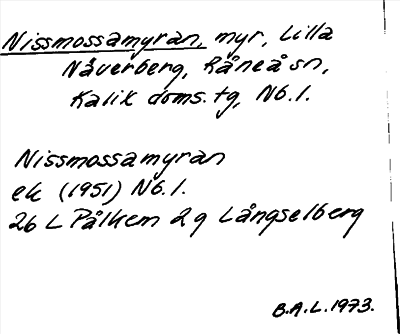 Nissmossamyran, myr, Lilla
Nåverberg, Råneå sn,
Kalix doms. tg, Nb. l.
Nissmossamyran
ek (1951) Nb. l.
26 L Pålkem 2 g Långselberg
B.A.L. 1973.